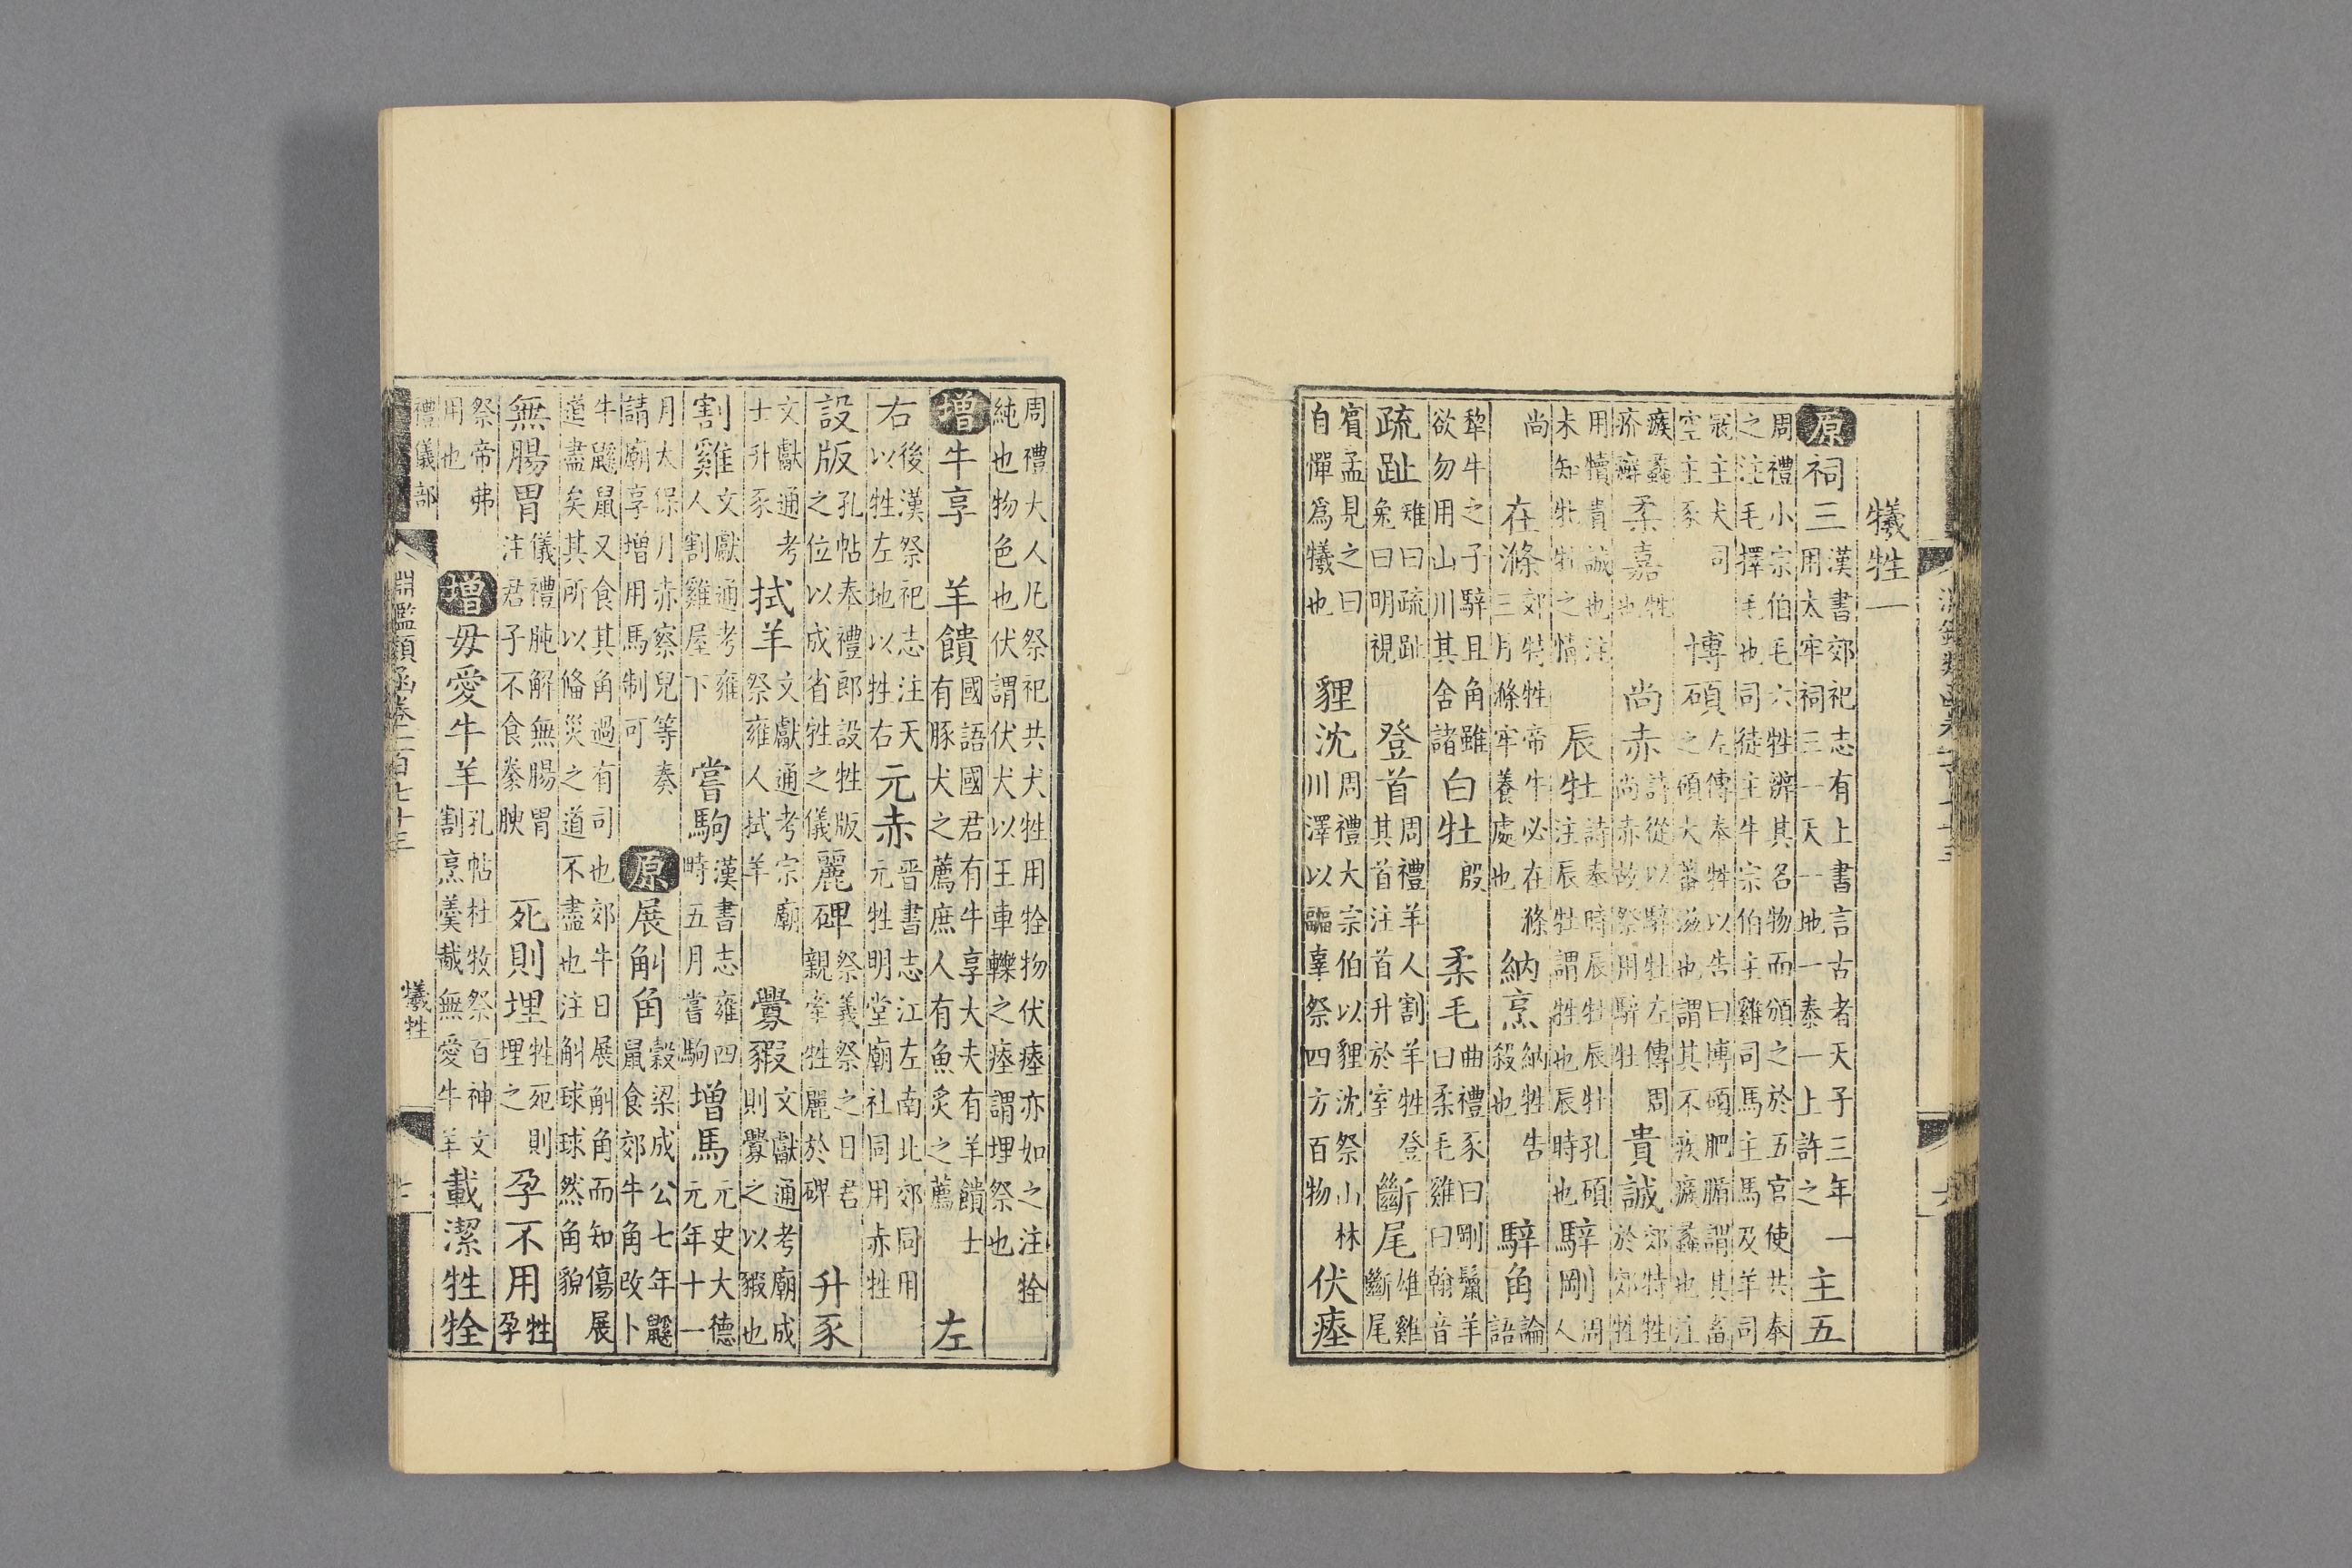 犧牲一
原祠三漢書郊祀志有上書言古者天子三年一用太牢祠三一天一地一泰一上許之主五
周禮小宗伯毛六牲辨其名物而頒之於五官使共奉之注毛擇毛也司徒主牛宗伯主雞司馬主馬及羊司
寇主犬司空主豕博碩左傳奉牲以告曰博碩肥腯謂其畜之碩大蕃滋也謂其不疾瘯蠡也注
瘯蠡疥癬柔嘉牲也尚赤詩從以騂牡左傳周尚赤故祭用騂牡貴誠郊特牲於郊牲
用犢貴誠也注未知牝牡之情辰牡詩奉時辰牡辰牡孔碩注辰牡謂牲也辰時也騂剛周人
尚在滌郊特牲帝牛必在滌三月滌牢養處也納烹納牲告殺也騂角論語
犂牛之子騂且角雖欲勿用山川其舍諸白牡殷柔毛曲禮豕曰剛鬣羊曰柔毛雞曰翰音
疏趾雉曰疏趾兔曰明視登首周禮羊人割羊牲登其首注首升於室斷尾雄雞斷尾
賓孟見之曰自憚爲犧也貍沈周禮大宗伯以貍沈祭山林川澤以疈辜祭四方百物伏瘞
周禮犬人凡祭祀共犬牲用牷物伏瘞亦如之注牷純也物色也伏謂伏犬以王車轢之瘞謂埋祭也
增牛享羊饋國語國君有牛享大夫有羊饋士有豚犬之薦庶人有魚炙之薦左
右後漢祭祀志注天以牲左地以牲右元赤晋書志江左南北郊同用元牲明堂廟社同用赤牲
設版孔帖奉禮郎設牲版之位以成省牲之儀麗碑祭義祭之日君親牽牲麗於碑升豕
文獻通考士升豕拭羊文獻通考宗廟祭雍人拭羊釁豭文獻通考廟成則釁之以豭也
割雞文獻通考雍人割雞屋下嘗駒漢書志雍四時五月嘗駒增馬元史大德元年十一
月太保月赤察兒等奏請廟享增用馬制可原展斛角穀梁成公七年鼷鼠食郊牛角改卜
牛鼷鼠又食其角過有司也郊牛日展斛角而知傷展道盡矣其所以備災之道不盡也注斛球球然角貌
無腸胃儀禮肫解無腸胃注君子不食豢腴死則埋牲死則埋之孕不用牲孕
祭帝弗用也增毋愛牛羊孔帖杜牧祭百神文割烹羹胾無愛牛羊載潔牲牷
禮儀部
淵鑑類函卷一百七十三
犧牲